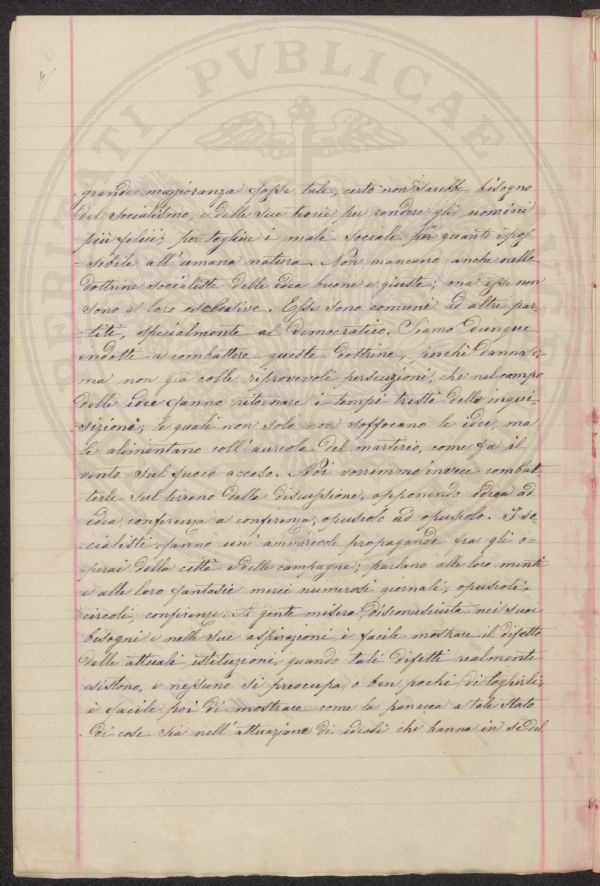 PERITATI PVBLICAE
grande maggioranza fosse tale, certo non sarebbe bisogno
del socialismo, e delle sue teorie per rendere gli uomini
più felici, per togliere i mali sociali per quanto è pos-
-sibile all'umana natura. Non mancano anche nelle
dottrine socialiste delle idee buone e giuste; ma esse non
sono a loro esclusive. Esse sono comuni ad altri par-
titi, specialmente al democratico. Siamo dunque
indotti a combattere queste dottrine, perchè dannose;
ma non già colle riprovevoli persecuzioni, che nel campo
delle idee fanno ritornare i tempi tristi della inqui-
sizione; le quali non solo non soffocano le idee, ma
le alimentano coll'aureola del martirio, come fa il
vento sul fuoco acceso. Noi vorremmo invece combat-
terle sul terreno della discussione, opponendo idea ad
idea, conferenza a conferenza, opuscolo ad opuscolo. I so-
cialisti fanno un'ammirevole propaganda fra gli o-
perai della città e delle campagne; parlano alle loro menti
e alle loro fantasie mercè numerosi giornali, opuscoli,
circoli, conferenze. A gente misera, disconosciuta nei suoi
bisogni e nelle sue aspirazioni è facile mostrare il difetto
delle attuali istituzioni, quando tali difetti realmente
esistono, e nessuno si preoccupa, o ben pochi, di toglierli;
è facile poi di mostrare come la panacea a tale stato
di cose sia nell'attuazione di ideali che hanno in sè del